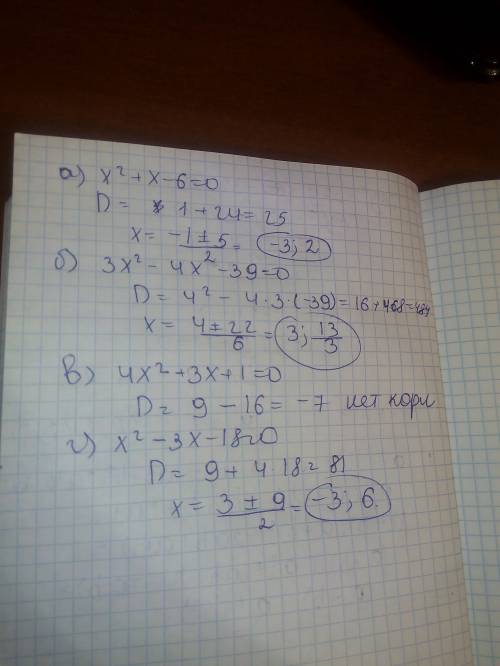 а) x² + x - 6 = 0
D = 1 + 24 = 25
x = -1 ± 5 = -3; 2
б) 3x² - 4x² - 39 = 0
D = 4² - 4 · 3 · (-39) = 16 + 468 = 484
x = 4 ± 22 / 6 = 3; 13/3
в) 4x² + 3x + 1 = 0
D = 9 - 16 = -7 нет корн
г) x² - 3x - 18 = 0
D = 9 + 4 18 = 81
x = 3 ± 9 / 2 = -3; 6